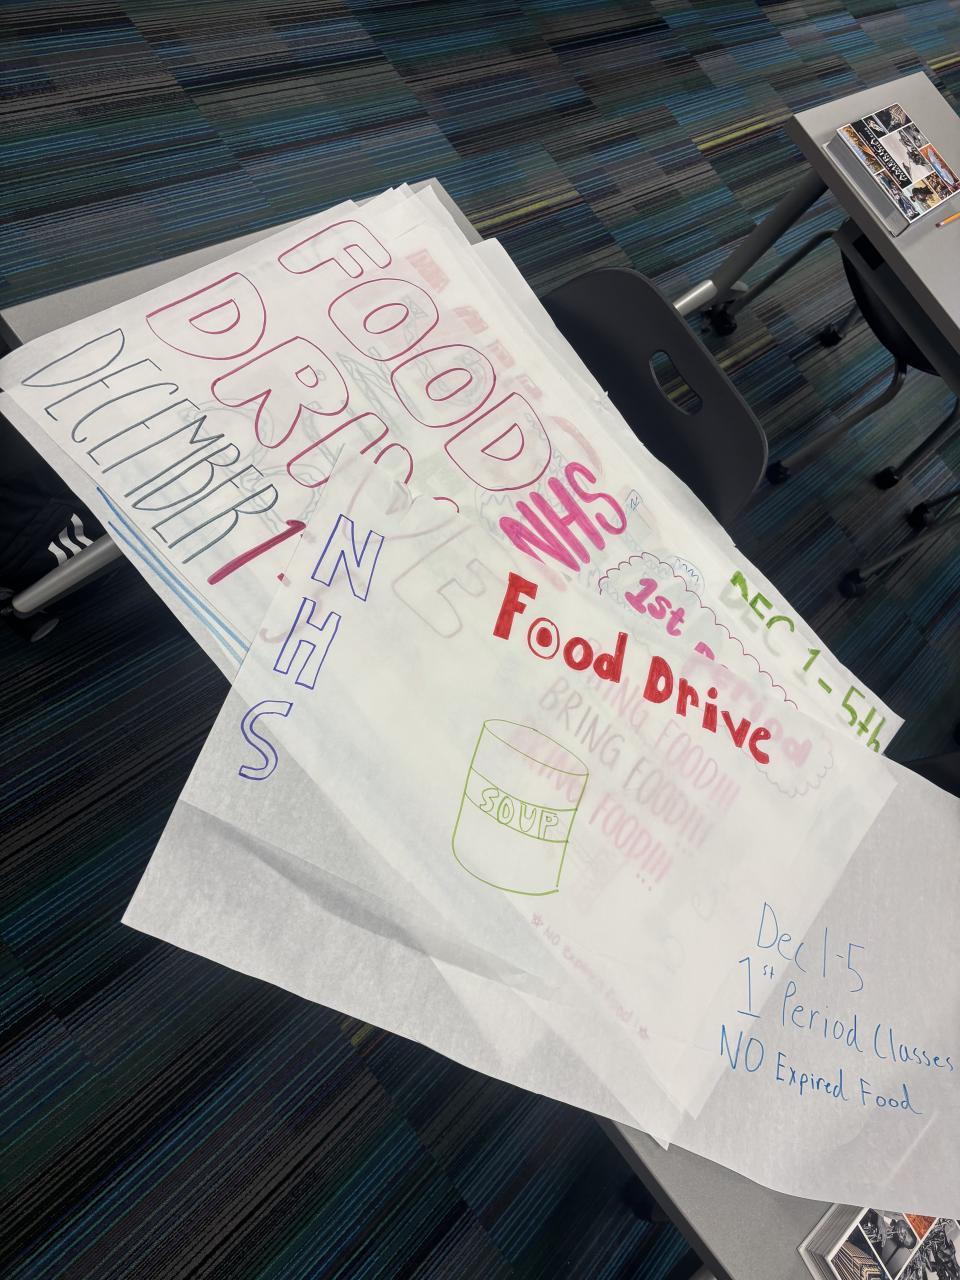 FOOD
DRIVE
DECEMBER 1
NHS
1st Period
DEC 1-5th
NHS
Food Drive
SOUP
BRING FOOD!!!
BRING FOOD!!!
BRING FOOD!!!
NO Expired Food!
Dec 1-5
1st Period Classes
NO Expired Food
AMERICAN